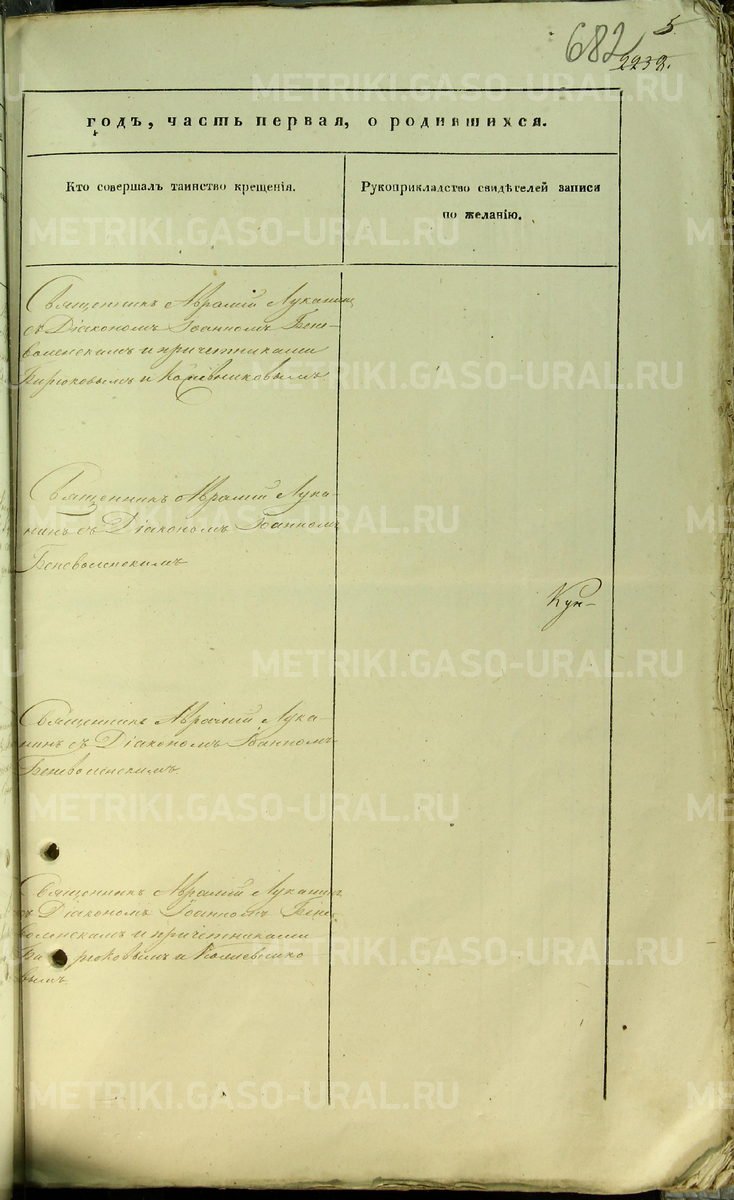 682
5.
2232.
годъ, часть первая, о родившихся.
Кто совершалъ таинство крещенія.
Рукоприкладство свидѣтелей записи
по желанію.
Священникъ Авраамій Луканинъ
съ Діакономъ Іоанномъ Бене-
воленскимъ и причетниками
и Кожевниковымъ
Священникъ Авраамій Лука-
нинъ съ Діакономъ Іоанномъ
Беневоленскимъ
Кун-
Священникъ Авраамій Лука-
нинъ съ Діакономъ Іоанномъ
Беневоленскимъ
Священникъ Авраамій Луканинъ
съ Діакономъ Іоанномъ Бене-
воленскимъ и причетниками
и Кожевнико-
вымъ
METRIKI.GASO-URAL.RU